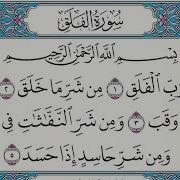 سُورَةُ الفَلَقِ
بِسْمِ اللَّهِ الرَّحْمَٰنِ الرَّحِيمِ
رَبِّ الْفَلَقِ ١ مِن شَرِّ مَا خَلَقَ ٢
وَقَبَ ٣ وَمِن شَرِّ النَّفَّاثَاتِ فِي
وَمِن شَرِّ حَاسِدٍ إِذَا حَسَدَ ٥